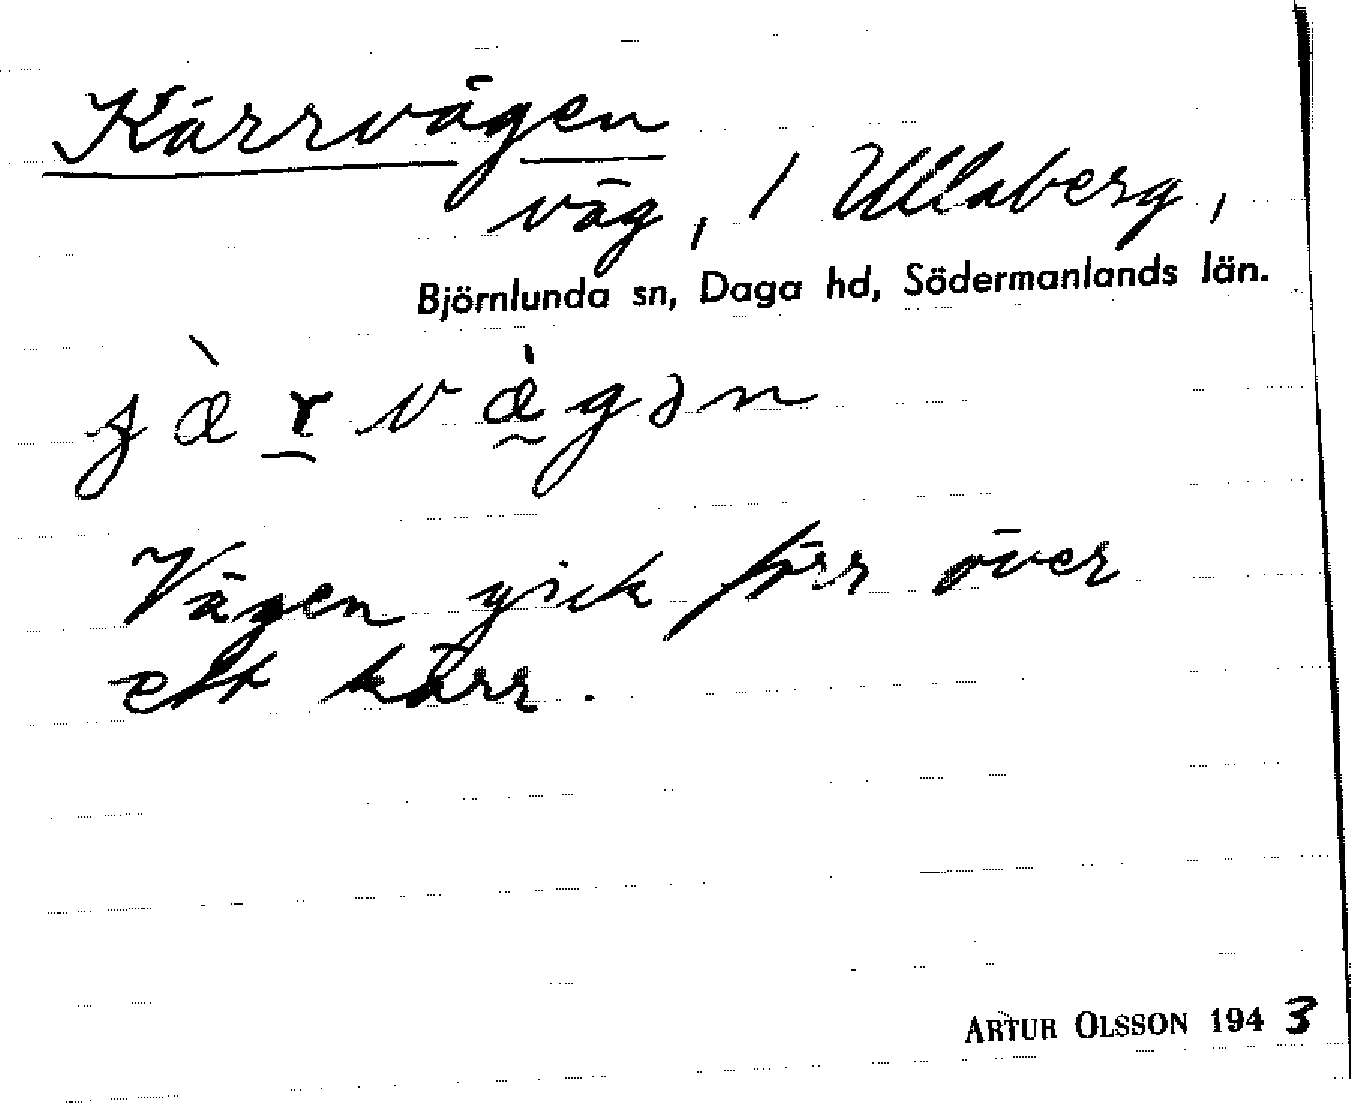 Kärrvägen
väg, 1 Ullaberg,
Björnlunda sn, Daga hd, Södermanlands län.
Vägen gick förr över
ett kärr.
ARTUR OLSSON 1943